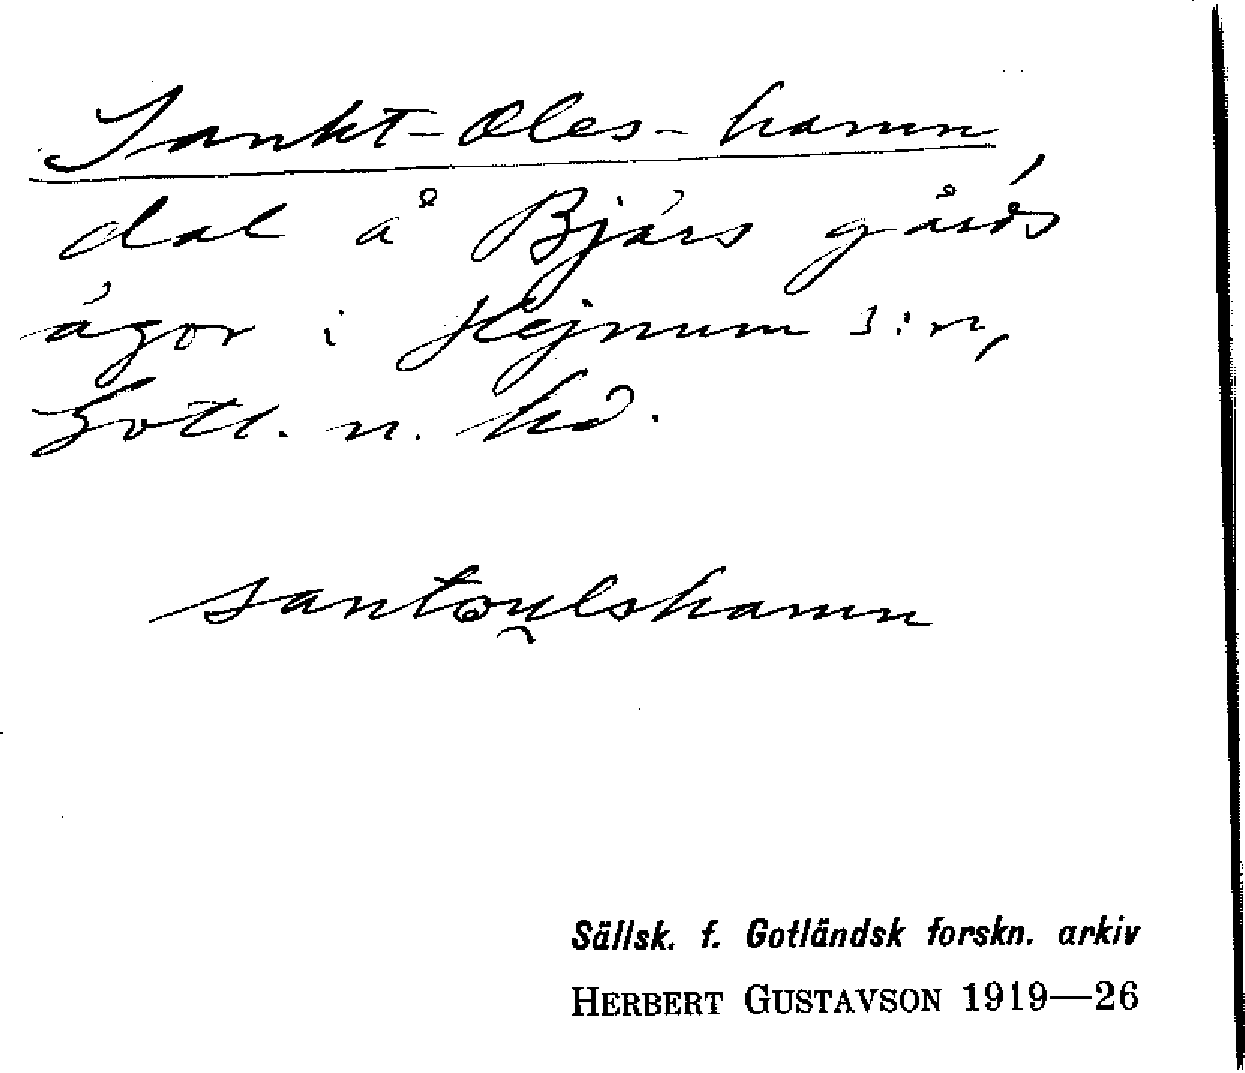 Sankt-Oles-hamn,
dal å Bjärs gårds
ägor i Hejnum s:n,
Gotl. n. hd.
santou̯lshamn
Sällsk. f. Gotländsk forskn. arkiv
HERBERT GUSTAVSON 1919—26